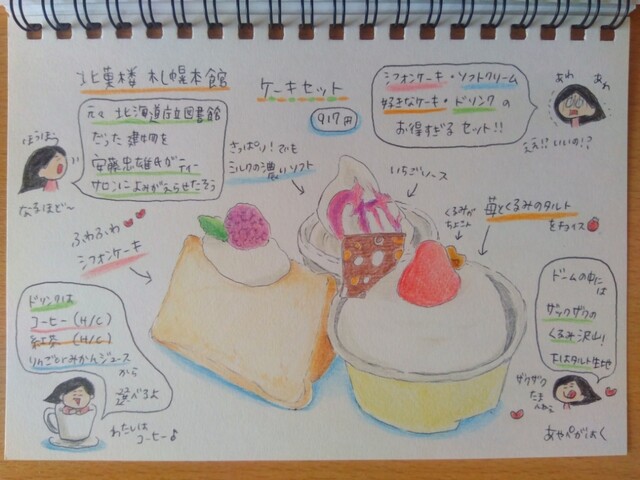 北菓楼 札幌本館
ケーキセット
917円
シフォンケーキ・ソフトクリーム
好きなケーキ・ドリンクの
お得すぎるセット!!
あわ
あわ
ええ!?いいの!?
元々 北海道庁立図書館
だった 建物を
安藤忠雄氏がティー
サロンによみがえらせたそう
ほうほう
なるほど〜
さっぱり!でも
ミルクの濃いソフト
いちごソース
くるみが
ちょこん
苺とくるみのタルト
をチョイス
ふわふわ
シフォンケーキ
ドームの中に
は
ザックザクの
くるみ沢山!
下はタルト生地
ザクザク
たまらん
ドリンクは
コーヒー(H/C)
紅茶(H/C)
りんごorみかんジュース
から
選べるよ
わたしは
コーヒー♪